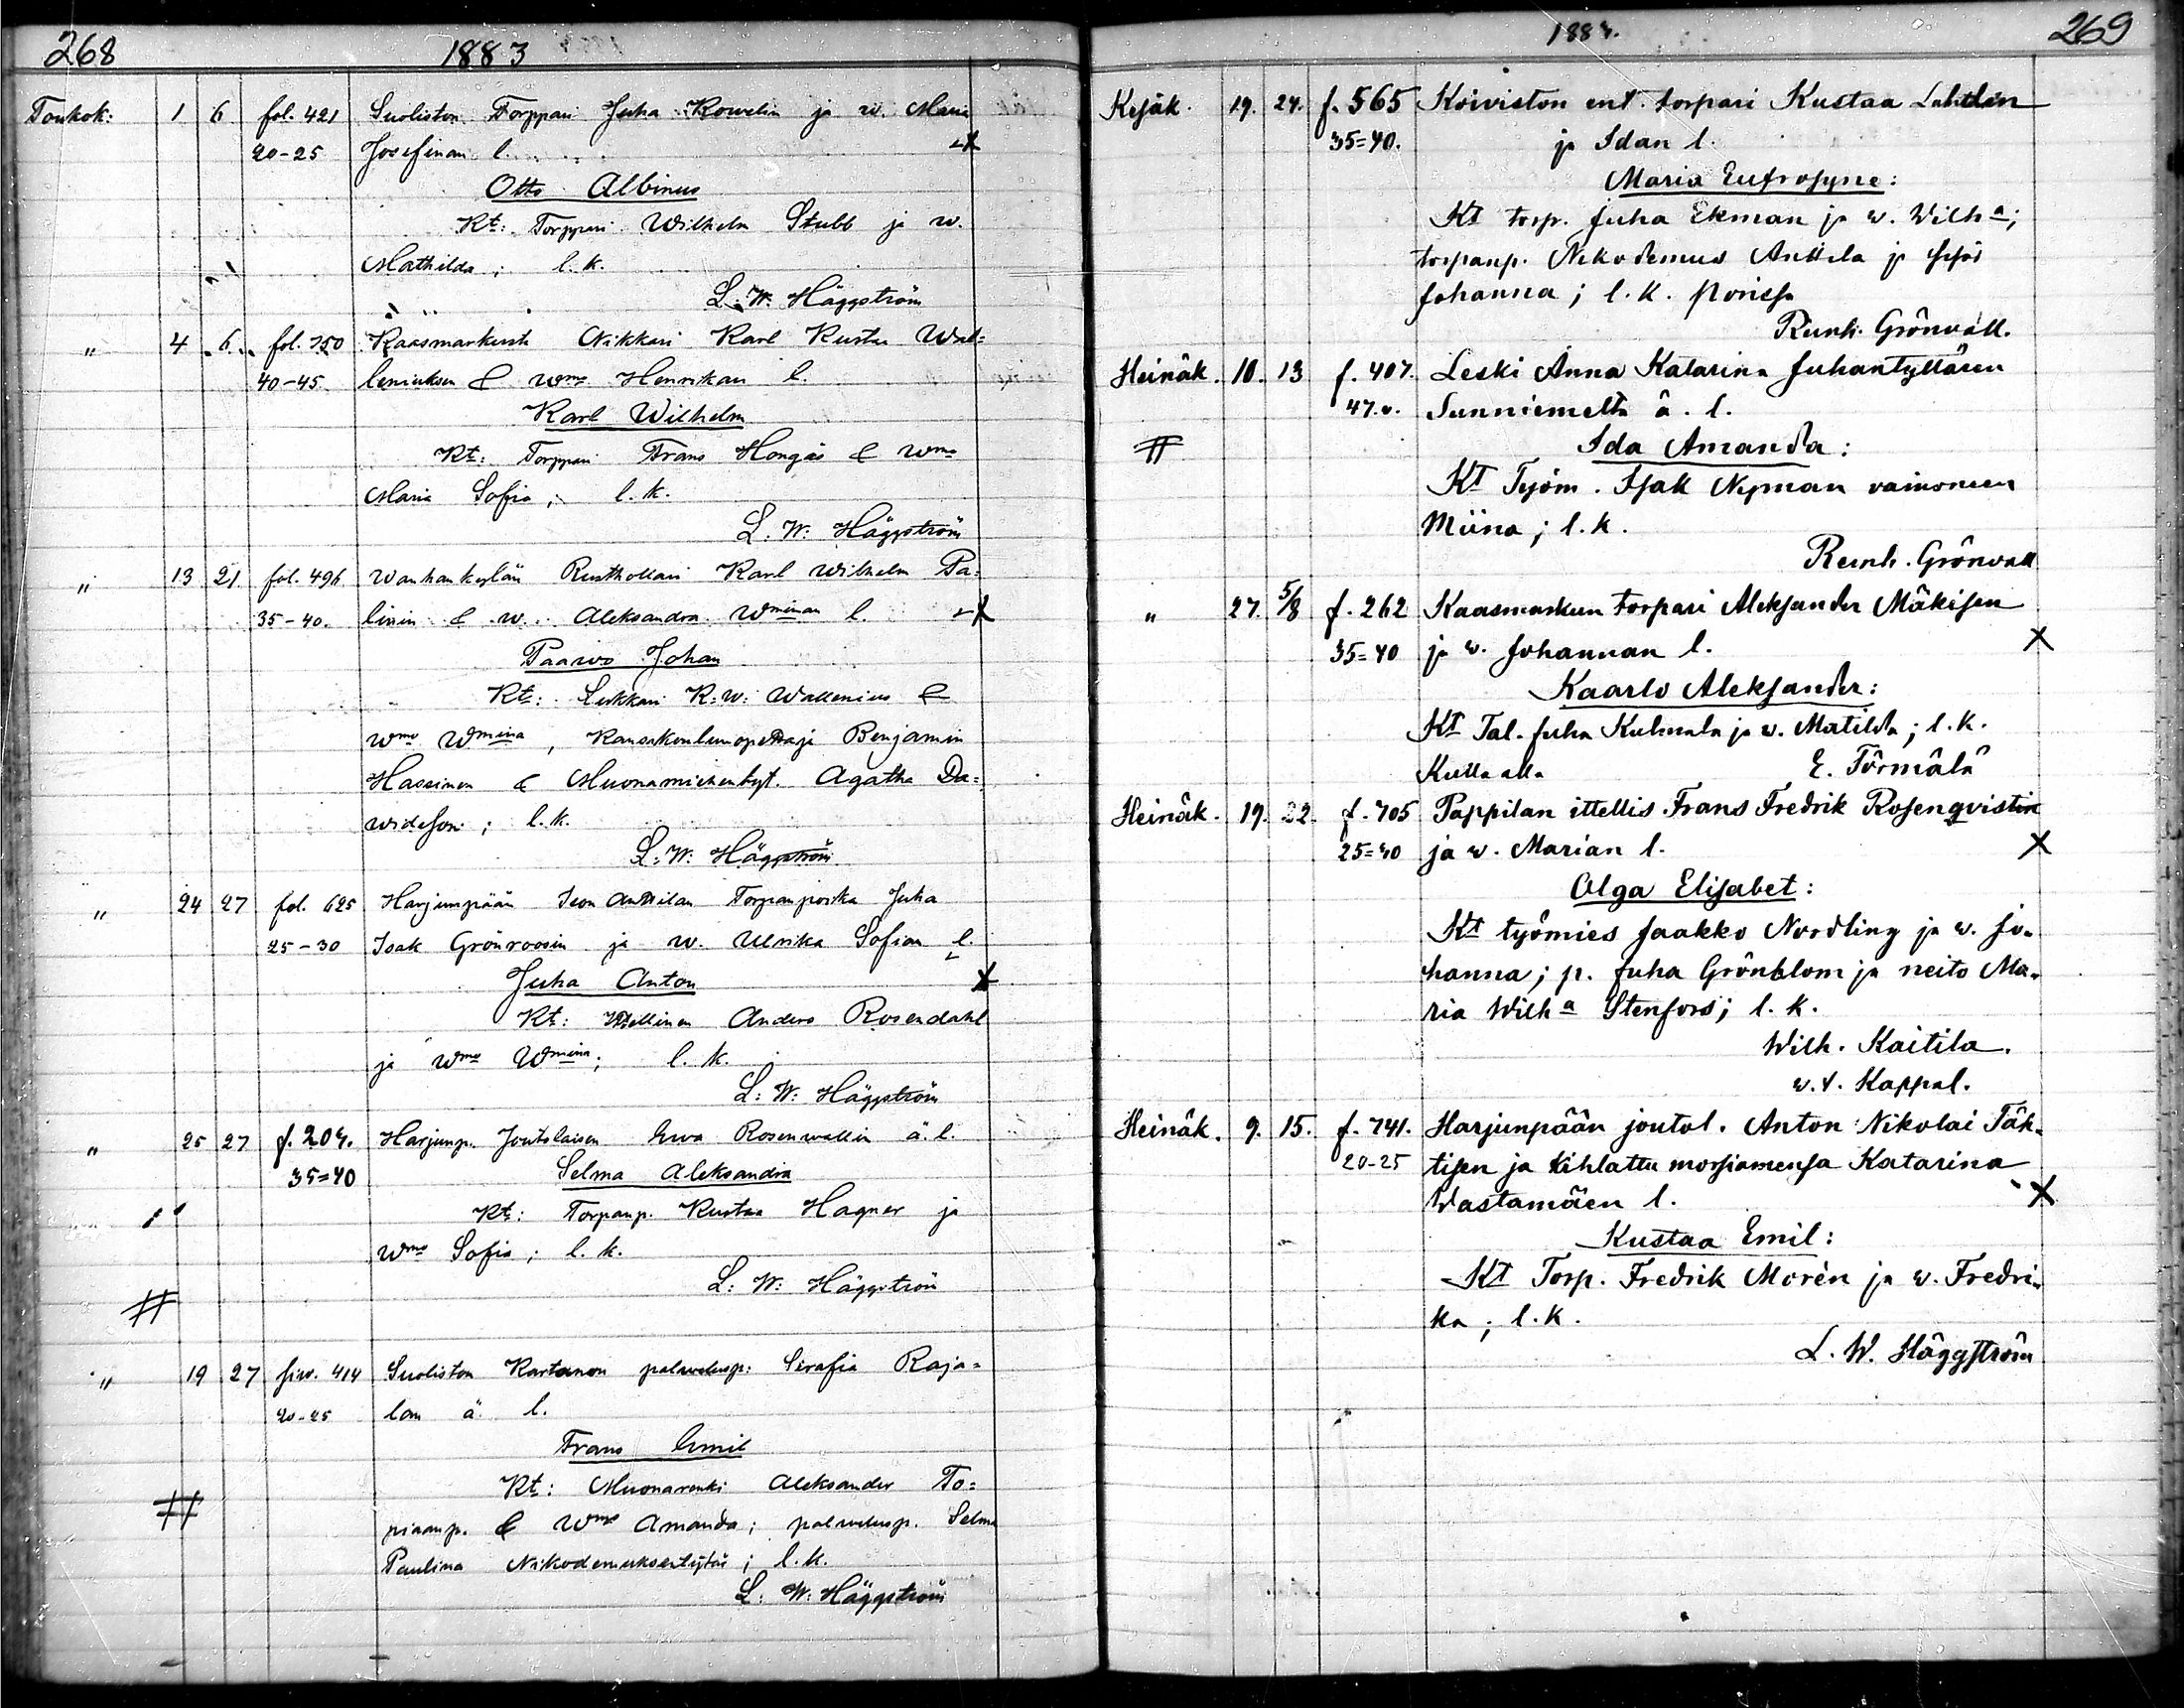 268 1883
Toukok: 1 6 fol. 421 Suoliston Torppari Juha Kowelin ja w. Maria
20-25 Josefinan l.
Otto Albinus
Kt: Torppari Wilhelm Stubb ja w.
Mathilda; l. k.
L. W. Häggström
" 4 6 fol. 750 Kaasmarkusta Nikkari Karl Kustaa Wal=
40-45 leniuksen & wmo Henrikan l.
Karl Wilhelm
Kt: Torppari Frans Hongas & wmo
Maria Sofia; l. k.
L. W. Häggström
" 13 21 fol. 496 Wanhankylän Rusthollari Karl Wilhelm Pa=
35-40. linin & w. Aleksandra Wminan l.
Paawo Johan
Kt: Lukkari K: W: Wallenius &
wmo Wmina, Kansakoulunopettaja Benjamin
Hassinen & Muonamiehentyt. Agatha Da=
widsson; l. k.
L: W: Häggström
" 24 27 fol. 625 Harjunpään Ison Anttilan Torpanpoika Juha
25-30 Isak Grönroosin ja w. Ulrika Sofian l.
Juha Anton
Kt: Itellinen Anders Rosendahl
ja wmo Wmina; l. k.
L: W: Häggström
" 25 27 f. 204. Harjunp. Joutolaisen Ewa Rosenwallin ä. l.
35=40 Selma Aleksandra
Kt: Torpanp. Kustaa Hagner ja
wmo Sofia; l. k.
L: W: Häggström
" 19 27 siw. 414 Suoliston Kartanon palwelusp: Serafia Raja=
20-25 lan ä. l.
Frans Emil
Kt: Muonarenki Aleksander To=
piaanp. & wmo Amanda; palwelusp. Selma
Paulina Nikodemuksentytär; l. k.
L: W: Häggström
1884. 269
Kesäk. 19. 24. f. 565 Koiviston ent. torpari Kustaa Lahden
35=40. ja Idan l.
Maria Eufrosyne:
Kt torp. Juha Ekman ja w. Wilha;
torpanp. Nikodemus Anttila ja
Johanna; l. k. Porissa
Reinh. Grönvall.
Heinäk. 10. 13 f. 407. Leski Anna Katarina Juhantyttären
47.v. Sunniemelta ä. l.
Ida Amanda:
Kt Työm. Isak Nyman vaimoneen
Miina; l. k.
Reinh. Grönvall
" 27. 5/8 f. 262 Kaasmarkun torpari Aleksander Mäkisen
35=40 ja w. Johannan l.
Kaarlo Aleksander:
Kt Tal. Juha Kulmala ja w. Matilda; l. k.
Kullaalla E. Törmälä
Heinäk. 19. 22. f. 705 Pappilan ittellis Frans Fredrik Rosenqvistin
25=40 ja w. Marian l.
Olga Elisabet:
Kt työmies Jaakko Nordling ja w. Jo-
hanna; p. Juha Grönblom ja neito Ma-
ria Wilha Stenfors; l. k.
Wilh. Kaitila.
w. t. Kappal.
Heinäk. 9. 15. f. 741. Harjunpään joutol. Anton Nikolai Täh-
20-25 tisen ja kihlattu morsiamensa Katarina
Wastamäen l.
Kustaa Emil:
Kt Torp. Fredrik Morén ja w. Fredri-
ka; l. k.
L. W. Häggström